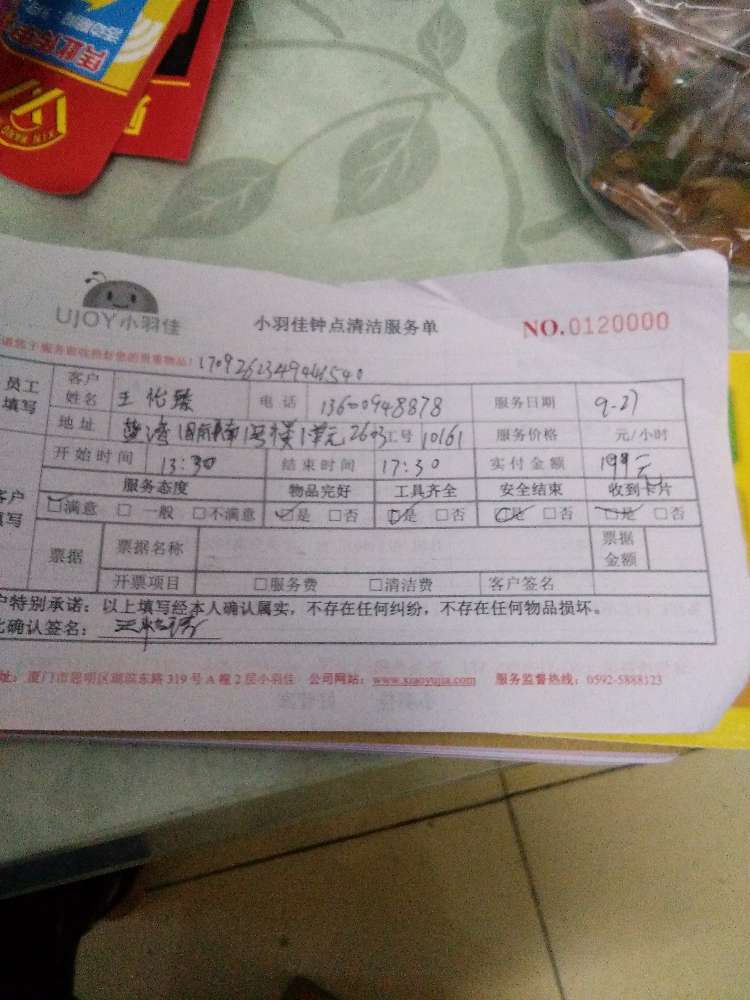 XIN KANG
UJOY小羽佳
小羽佳钟点清洁服务单
NO.0120000
员工填写
客户姓名 王怡臻 电话 13600948878 服务日期 9-27
地址 1单元2603 工号 10161 服务价格 元/小时
开始时间 13:30 结束时间 17:30 实付金额 199元
客户填写
服务态度 物品完好 工具齐全 安全结束 收到卡片
□满意 □一般 □不满意 □是 □否 □是 □否 □是 □否 □是 □否
票据 票据名称 票据金额
开票项目 □服务费 □清洁费 客户签名
户特别承诺：以上填写经本人确认属实，不存在任何纠纷，不存在任何物品损坏。
此确认签名：
址：厦门市思明区湖滨东路319号A幢2层小羽佳 公司网站：www.xiaoyujia.com 服务监督热线：0592-5888123